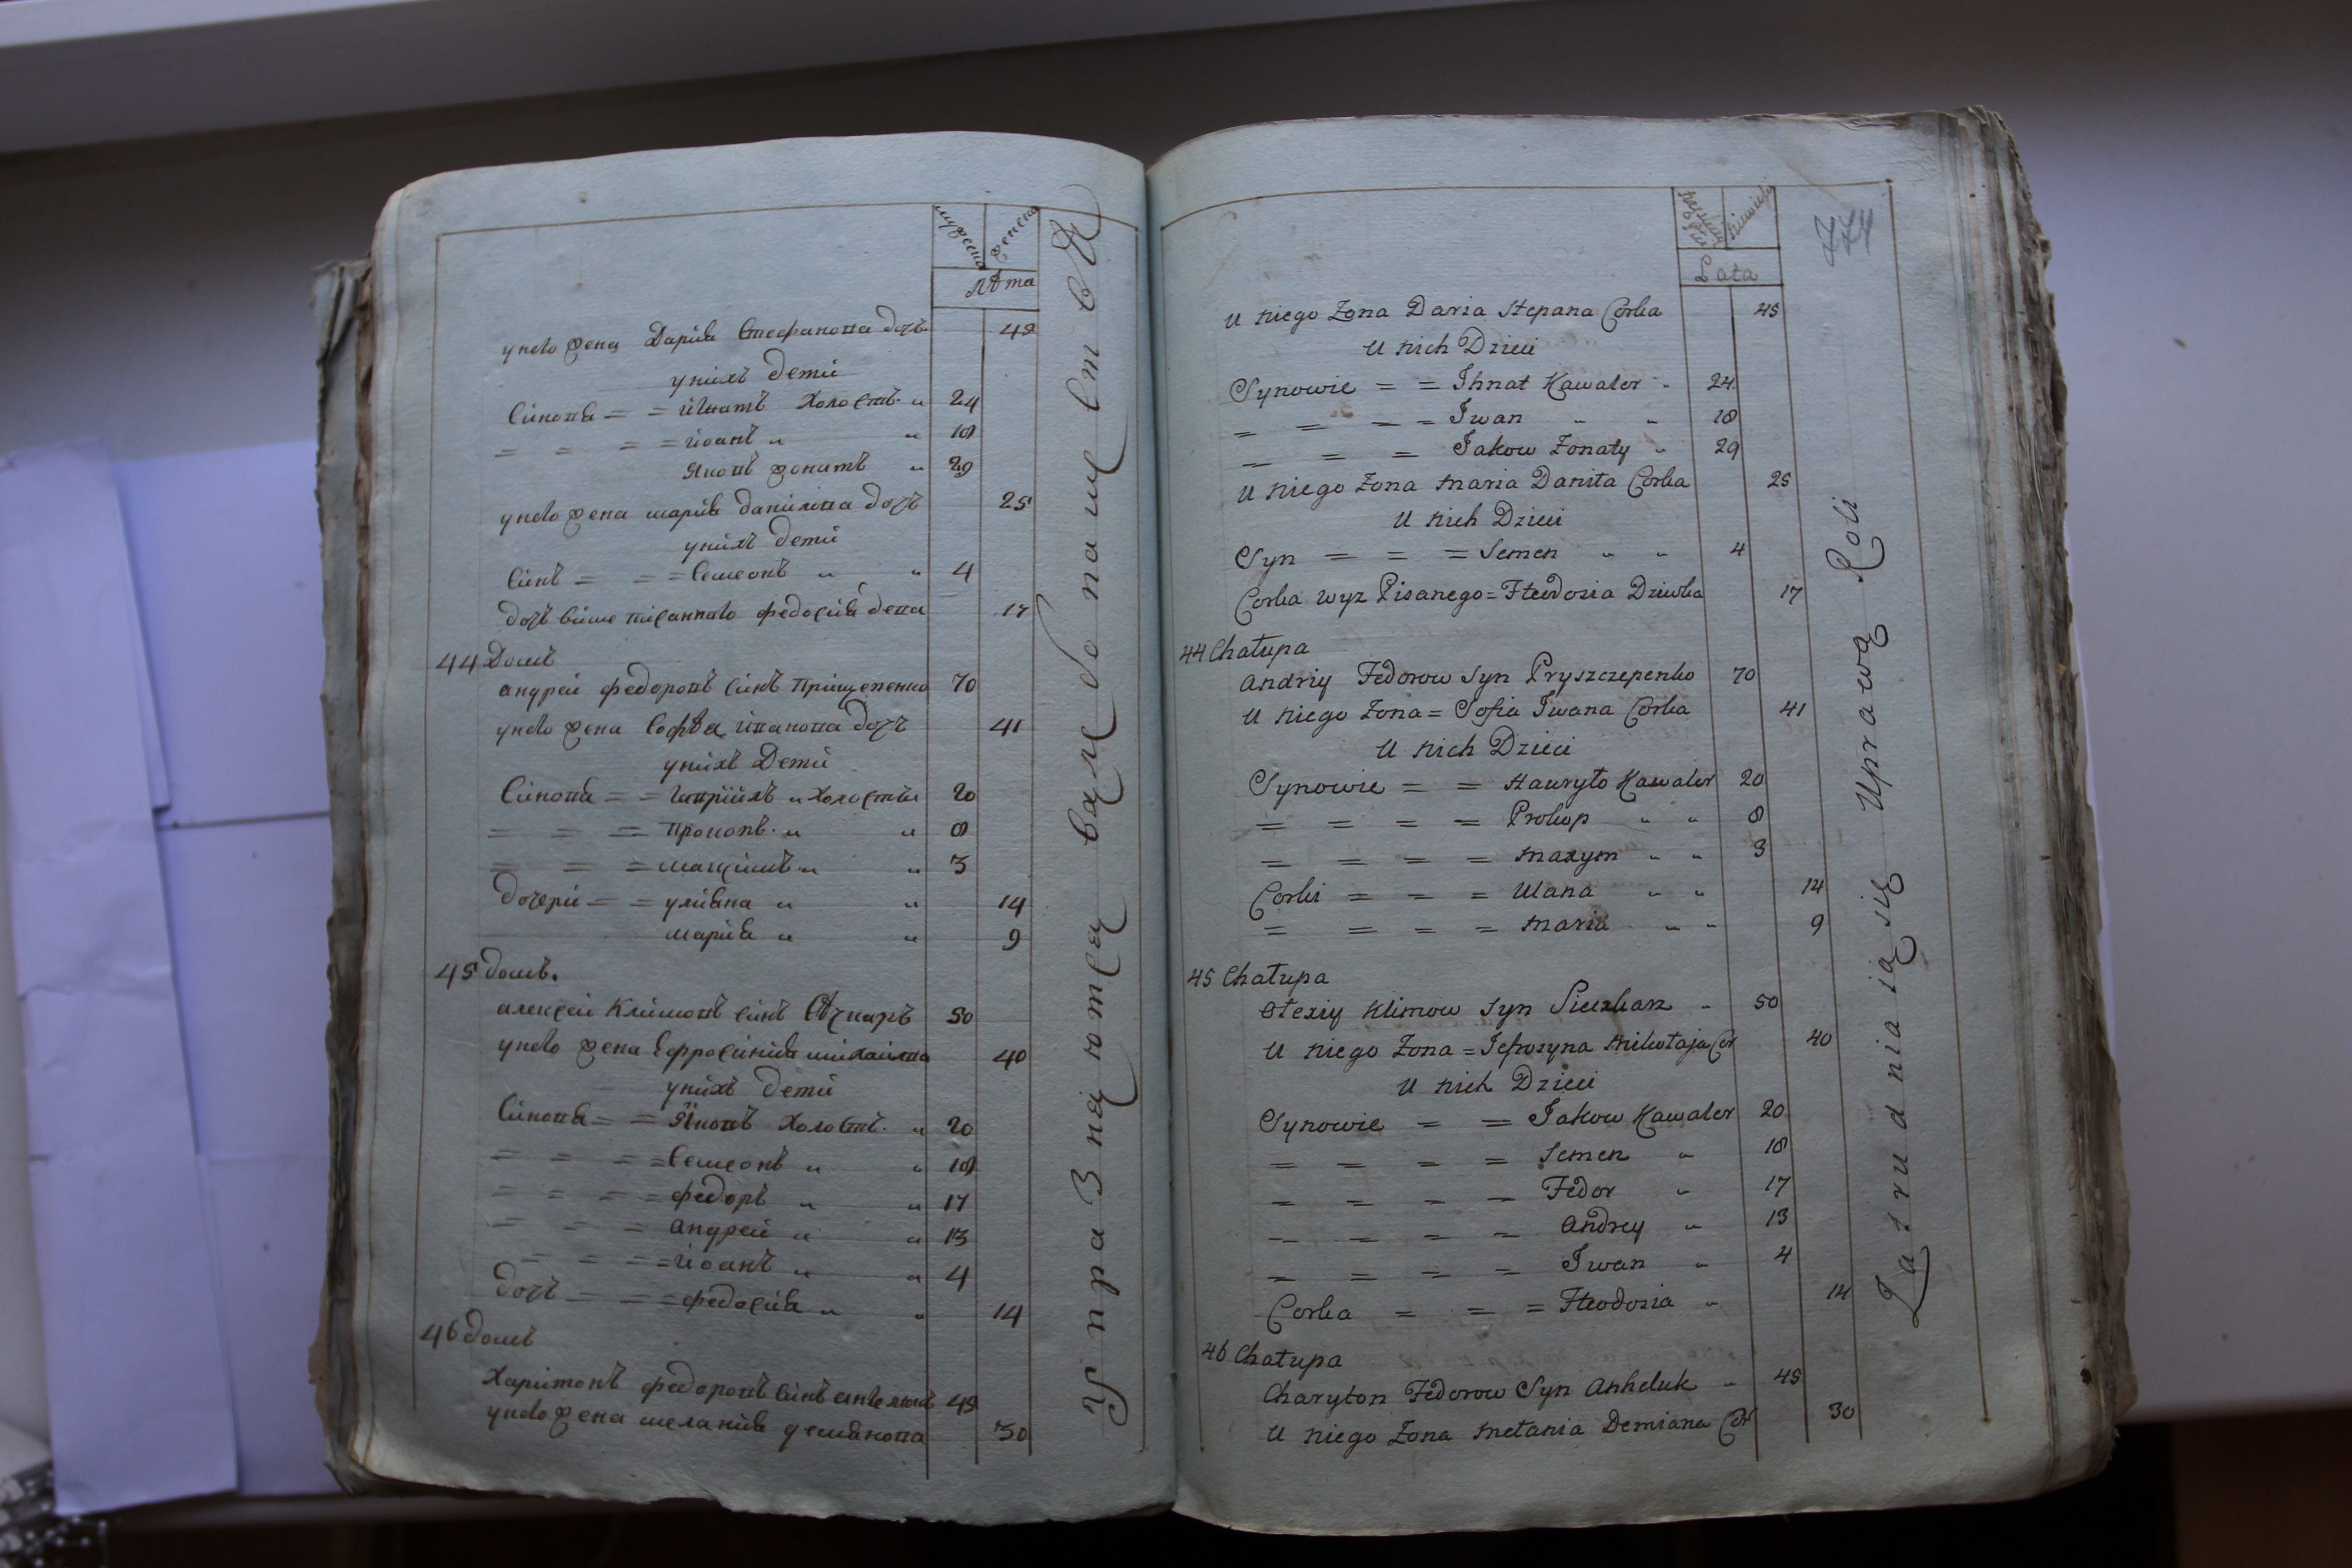 мужеска
женска
лѣта
унего жена Дарїя Стефанова дочъ 48
унихъ дети
Сїновя = = їгнатъ холостъ „ 24
= = = = їоанъ „ „ 18
Яковъ жонатъ „ 29
унего жена марїя данїлова дочъ 25
унихъ дети
Сїнъ = = = Семеонъ „ „ 4
дочъ више писаннаго федосїя девка 17
44 Домъ
андреи федоровъ Сїнъ Прищепенко 70
унего жена Софѣя ївановa дочъ 41
унихъ Дети
Сїновя = = гаврїилъ „ холостъ „ 20
= = = = прокопъ „ „ 8
= = = = максимъ „ „ 3
дочери = = улїяна „ „ 14
марїя „ „ 9
45 домъ.
алексеи Климовъ сїнъ Сѣчкаръ 50
унего жена Ефросїнїя михаилова 40
унихъ дети
Сїновя = = Яковъ Холостъ „ 20
= = = = Семеонъ „ „ 18
= = = = федоръ „ „ 17
= = = андреи „ „ 13
= = = = їоанъ „ „ 4
дочъ = = = федосїя „ „ 14
46 домъ
Харитонъ федоровъ Сїнъ 48
унего жена меланїя демянова 30
Lata
U niego Zona Daria Stepana Corka 48
U nich Dzieci
Synowie = = Ihnat Kawaler „ 24
= = = = Iwan „ „ 18
= = = Jakow Zonaty „ 29
U niego Zona Maria Daniła Corka 25
U nich Dzieci
Syn = = = Semen „ „ 4
Corka wyz Pisanego = Fteodosia Dziewka 17
44 Chałupa
Andriy Fedorow Syn Pryszczepenko 70
U niego Zona = Sofia Iwana Corka 41
U nich Dzieci
Synowie = = Hawryło Kawaler 20
= = = = Prokop „ „ 8
= = = = Maxym „ „ 3
Corki = = = Ulana „ „ 14
= = = = Maria „ „ 9
45 Chałupa
Olexiy Klimow Syn Sieczkarz „ 50
U niego Zona = Jefrosyna Mikołaja Cor 40
U nich Dzieci
Synowie = = Jakow Kawaler 20
= = = = Semen „ 18
= = = = Fedor „ 17
= = = = Andrey „ 13
= = = = Iwan „ 4
Corka = = = Fteodosia „ 14
46 Chałupa
Charyton Fedorow Syn Anheluk „ 48
U niego Zona Mełania Demiana Cor 30
Zatrudniaią się Uprawą Roli